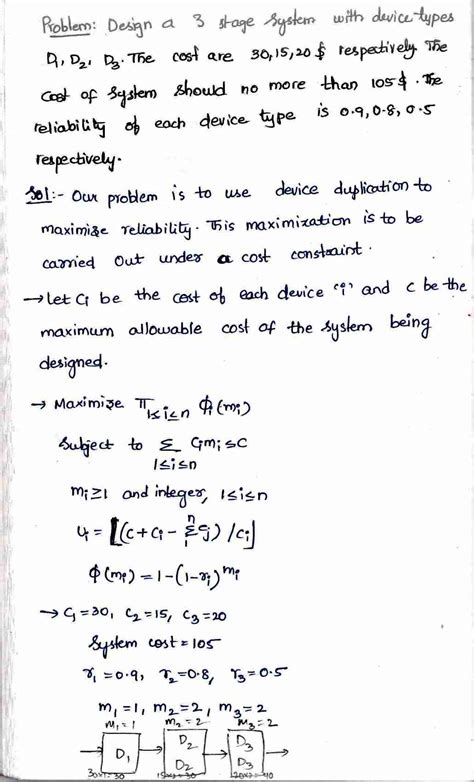 Problem: Design a 3 stage system with device types
D1, D2, D3. The cost are 30,15,20 $ respectively The
cost of system should no more than 105$. The
reliability of each device type is 0.9, 0.8, 0.5
respectively.
Sol:- Our problem is to use device duplication to
maximize reliability. This maximization is to be
carried out under a cost constraint.
→ let Ci be the cost of each device 'i' and c be the
maximum allowable cost of the system being
designed.
→ Maximize π1≤i≤n φi(mi)
Subject to Σ Cimi ≤ C
1≤i≤n
mi≥1 and integer, 1≤i≤n
n
Ui = ⌊(c+ci - ΣCj)/ci⌋
1
φ(mi) = 1-(1-ri)^mi
→ C1=30, C2=15, C3=20
System cost=105
r1=0.9, r2=0.8, r3=0.5
m1=1, m2=2, m3=2
m1=1 m2=2 m3=2
D2 D3
D1
D2 D3
30x1=30 15x2=30 20x2=40